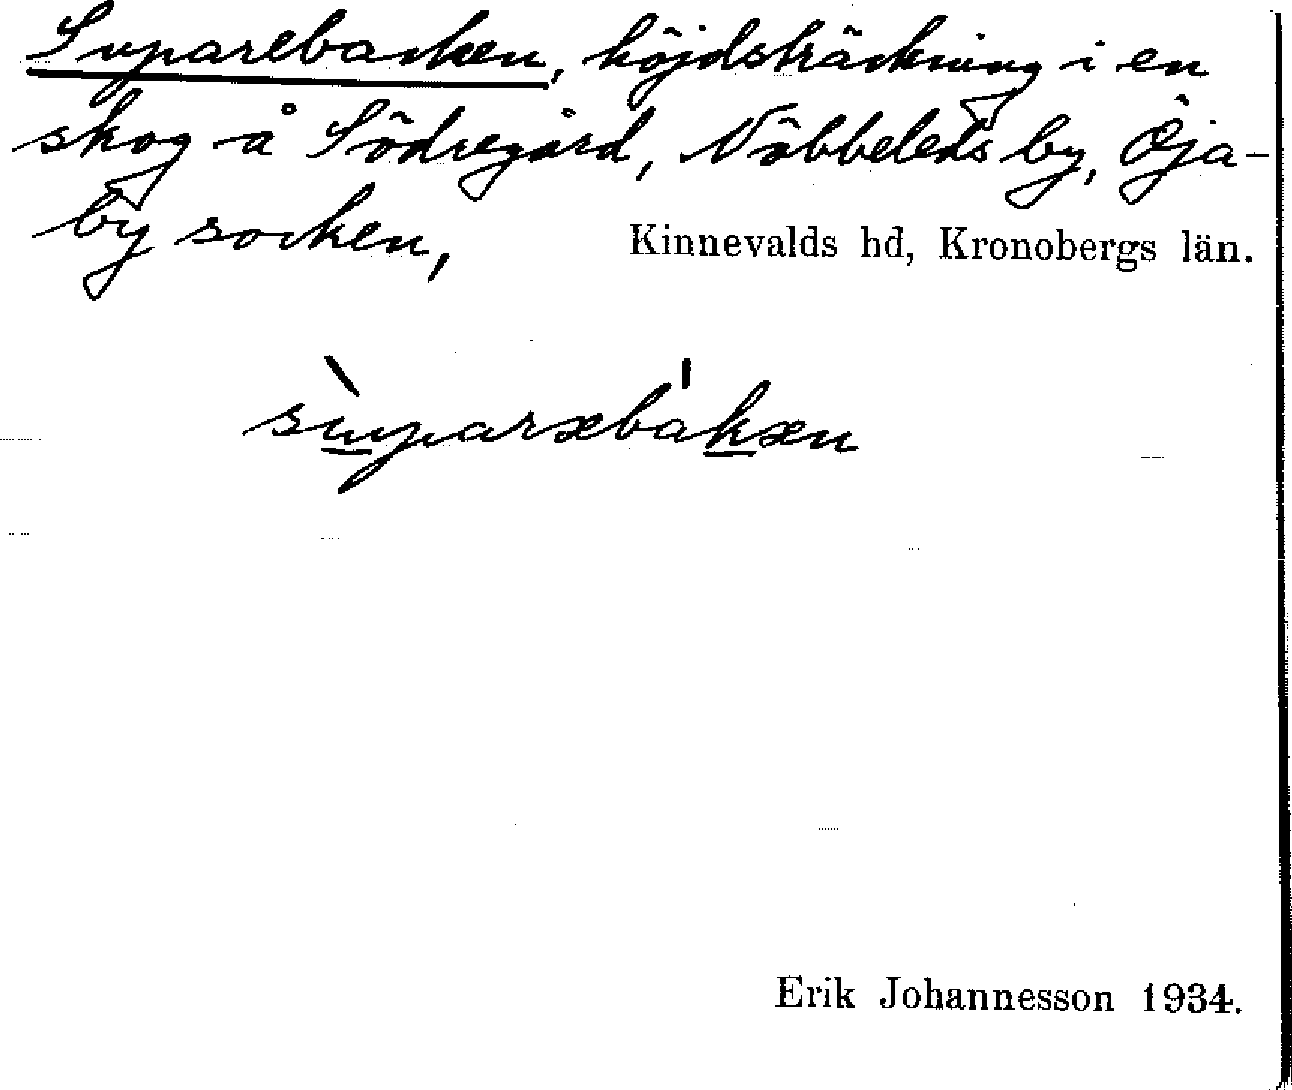 Suparebacken, höjdsträckning i en
skog å Södregård, Nöbbeleds by, Öja-
by socken, Kinnevalds hd, Kronobergs län.
sùparæbákæn
Erik Johannesson 1934.